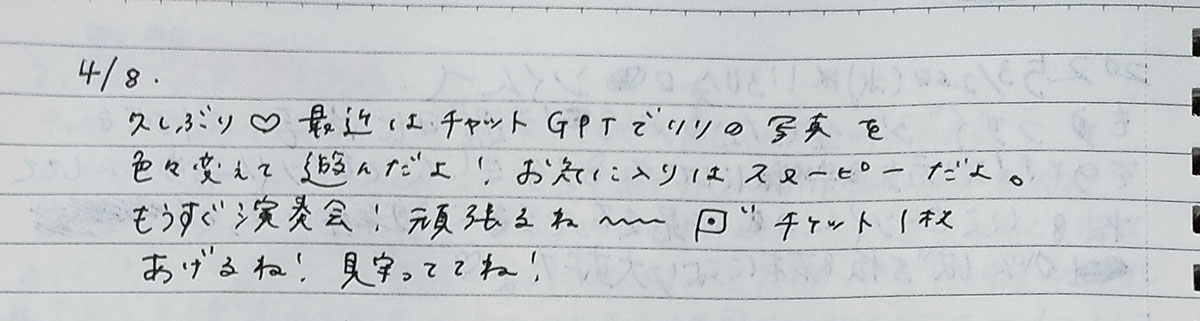 4/8.
久しぶり♡ 最近はチャットGPTでリリの写真を
色々変えて遊んだよ! お気に入りはスヌーピーだよ。
もうすぐ演奏会! 頑張るね〜〜 チケット1枚
あげるね! 見守っててね!